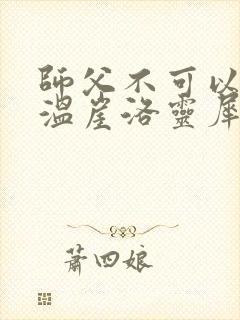 師父不可以
溫崖洛靈犀
蕭四娘